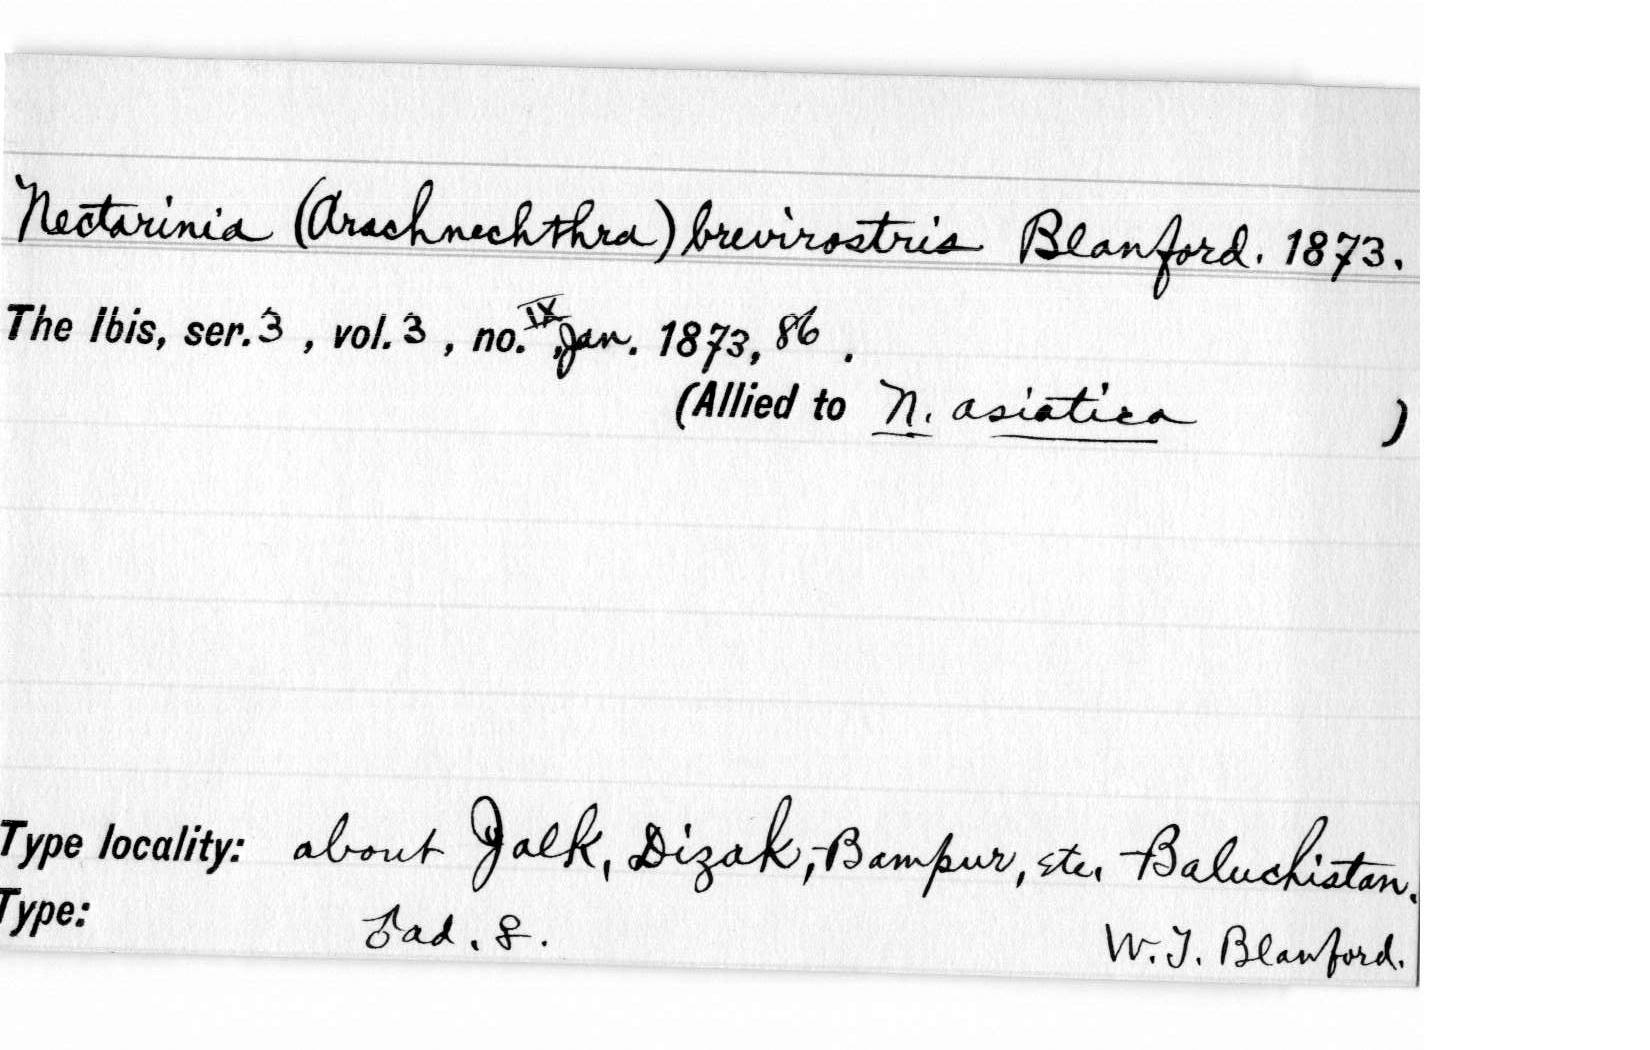 Nectarinia (Arachnechthra) brevirostris Blanford. 1873.
The Ibis, ser. 3, vol. 3, no. IX, Jan. 1873, 86.
(Allied to N. asiatica )
Type locality: about Jalk, Dizak, Bampur, etc. Baluchistan.
Type: ♂ad. ♀. W.T. Blanford.